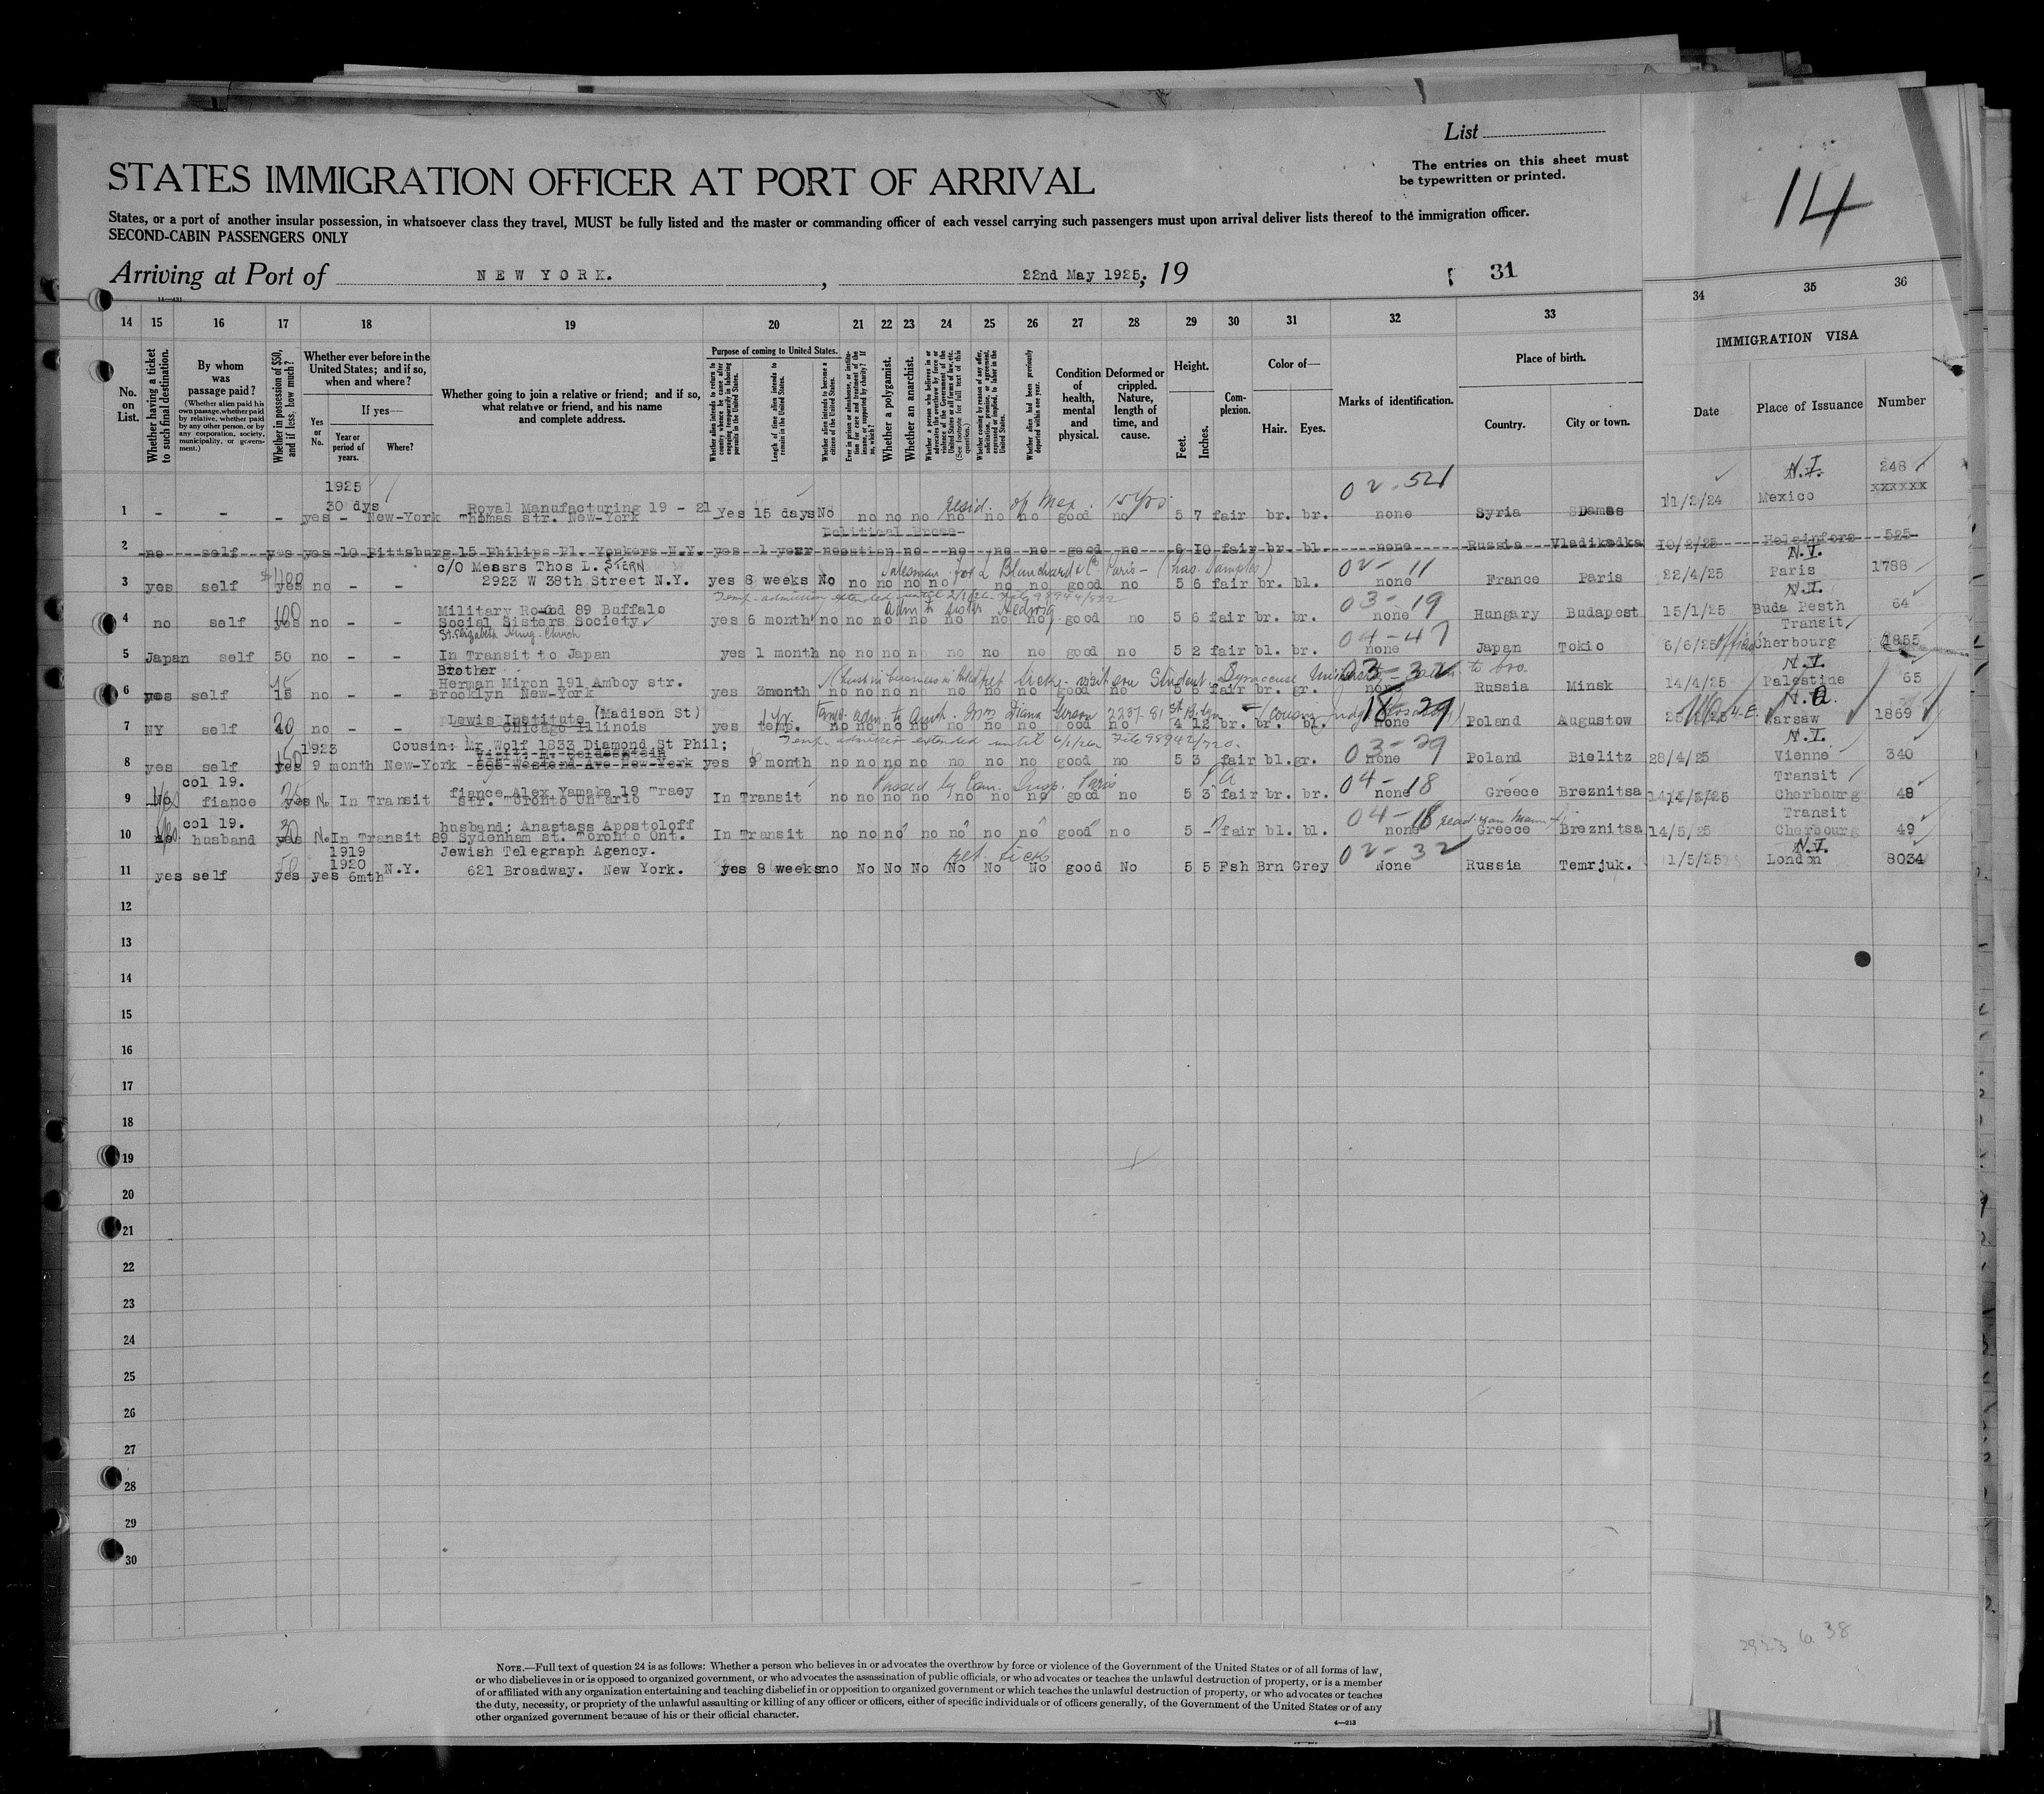 List
The entries on this sheet must
be typewritten or printed.
14
STATES IMMIGRATION OFFICER AT PORT OF ARRIVAL
States, or a port of another insular possession, in whatsoever class they travel, MUST be fully listed and the master or commanding officer of each vessel carrying such passengers must upon arrival deliver lists thereof to the immigration officer.
SECOND-CABIN PASSENGERS ONLY
Arriving at Port of NEW YORK. , 22nd May 1925; 19 31
14 15 16 17 18 19 20 21 22 23 24 25 26 27 28 29 30 31 32 33 34 35 36
IMMIGRATION VISA
No. on List.
Whether having a ticket to such final destination.
By whom was passage paid?
(Whether alien paid his own passage, whether paid by relative, whether paid by any other person, or by any corporation, society, municipality, or government.)
Whether in possession of $50, and if less, how much?
Whether ever before in the United States; and if so, when and where?
Yes or No.
If yes—
Year or period of years.
Where?
Whether going to join a relative or friend; and if so, what relative or friend, and his name and complete address.
Purpose of coming to United States.
Whether alien intends to return to country whence he came after engaging temporarily in laboring pursuits in the United States.
Length of time alien intends to remain in the United States.
Whether alien intends to become a citizen of the United States.
Ever in prison or almshouse, or institution for care and treatment of the insane, or supported by charity? If so, which?
Whether a polygamist.
Whether an anarchist.
Whether coming by reason of any offer, solicitation, promise, or agreement, expressed or implied, to labor in the United States.
Whether alien had been previously deported within one year.
Condition of health, mental and physical.
Deformed or crippled. Nature, length of time, and cause.
Height.
Feet.
Inches.
Complexion.
Color of—
Hair.
Eyes.
Marks of identification.
Place of birth.
Country.
City or town.
Date
Place of Issuance
Number
1925 02-521 N.I. 248
30 dys Royal Manufacturing 19 - 21 resid. of Mex. 15 yrs. xxxxxx
1 - - - yes - New-York Thomas str. New-York Yes 15 days No no no no no no no good no 5 7 fair br. br. none Syria Damas 11/2/24 Mexico
2 no self yes yes 10 Pittsburg 15 Philips Pl. Yonkers N.Y. yes 1 year no no no no no good no 6 10 fair br. bl. none Russia Vladikadka 10/2/25 Helsinfors 525
c/o Messrs Thos L. STERN Salesman for L Blanchard & Co Paris - (has samples) 02-11 N.I.
3 yes self $400 yes no - - 2923 W 38th Street N.Y. yes 8 weeks No no no no no no no good no 5 6 fair br. bl. none France Paris 22/4/25 Paris 1788
Military Road 89 Buffalo adm to sister Hedwig 03-19 N.I.
4 no self 100 yes no - - Social Sisters Society yes 6 month no no no no no no no good no 5 6 fair br. br. none Hungary Budapest 15/1/25 Buda Pesth 64
04-47 Transit
5 Japan self 50 no - - In Transit to Japan yes 1 month no no no n no no no good no 5 2 fair bl. br. none Japan Tokio 6/6/25 Cherbourg 1855
Brother
Herman Miron 191 Amboy str. 03-32 to bro. N.I.
6 yes self 15 no - - Brooklyn New-York yes 3month no no no no no no no good no 5 6 fair br. gr. none Russia Minsk 14/4/25 Palestine 65
Lewis Institute (Madison St) 1 yr. 18-29
7 NY self 20 no - - Chicago Illinois yes temp. no no no no no no no good no 4 12 br. br. bl. none Poland Augustow Warsaw 1869
Temp. admission extended until 6/1/26 File 98942/720.
1923 Cousin: Mr Wolf 1833 Diamond St Phil; 03-29 N.I.
8 yes self 150 yes 9 month New-York 505 Western Ave New-York yes 9 month no no no no no no no good no 5 3 fair bl. gr. none Poland Bielitz 28/4/25 Vienne 340
col 19. fiance Alex Yamake 19 Tracy Passed by Can. Insp. Paris 04-18 Transit
9 fiance 25 yes No In Transit str. Toronto Ontario In Transit no no no no no no no good no 5 3 fair br. br. none Greece Breznitsa 14/5/25 Cherbourg 48
col 19. husband: Anastass Apostoloff 04-18 Transit
10 husband 30 yes No In Transit 89 Sydenham st. Toronto Ont. In Transit no no no no no no no good no 5 - fair bl. bl. none Greece Breznitsa 14/5/25 Cherbourg 49
1919 Jewish Telegraph Agency. ret. ticke 02-32 N.I.
11 yes self yes yes 1920 6mth N.Y. 621 Broadway. New York. yes 8 weeks no No No No No No No good No 5 5 Fsh Brn Grey None Russia Temrjuk. 1/5/25 London 8034
12
13
14
15
16
17
18
19
20
21
22
23
24
25
26
27
28
29
30
2923 W. 38
NOTE.—Full text of question 24 is as follows: Whether a person who believes in or advocates the overthrow by force or violence of the Government of the United States or of all forms of law,
or who disbelieves in or is opposed to organized government, or who advocates the assassination of public officials, or who advocates or teaches the unlawful destruction of property, or is a member
of or affiliated with any organization entertaining and teaching disbelief in or opposition to organized government or which teaches the unlawful destruction of property, or who advocates or teaches
the duty, necessity, or propriety of the unlawful assaulting or killing of any officer or officers, either of specific individuals or of officers generally, of the Government of the United States or of any
other organized government because of his or their official character.
4—213